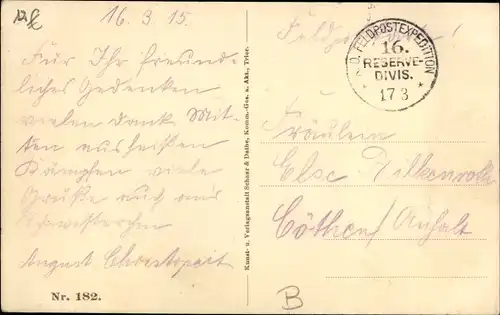 16.3.15.
Für Ihr freund-
liches Gedenken
vielen Dank. Mit-
ten aus heißen
Kämpfen viele
Grüße auch ans
Schwesterchen
August
Nr. 182.
Kunst- u. Verlagsanstalt Schaar & Dathe, Komm.-Ges. a. Akt., Trier.
Feldpost
K.D. FELDPOSTEXPEDITION
16.
RESERVE-
DIVIS.
* 17 3 *
Fräulein
Else
Cöthen/Anhalt
B